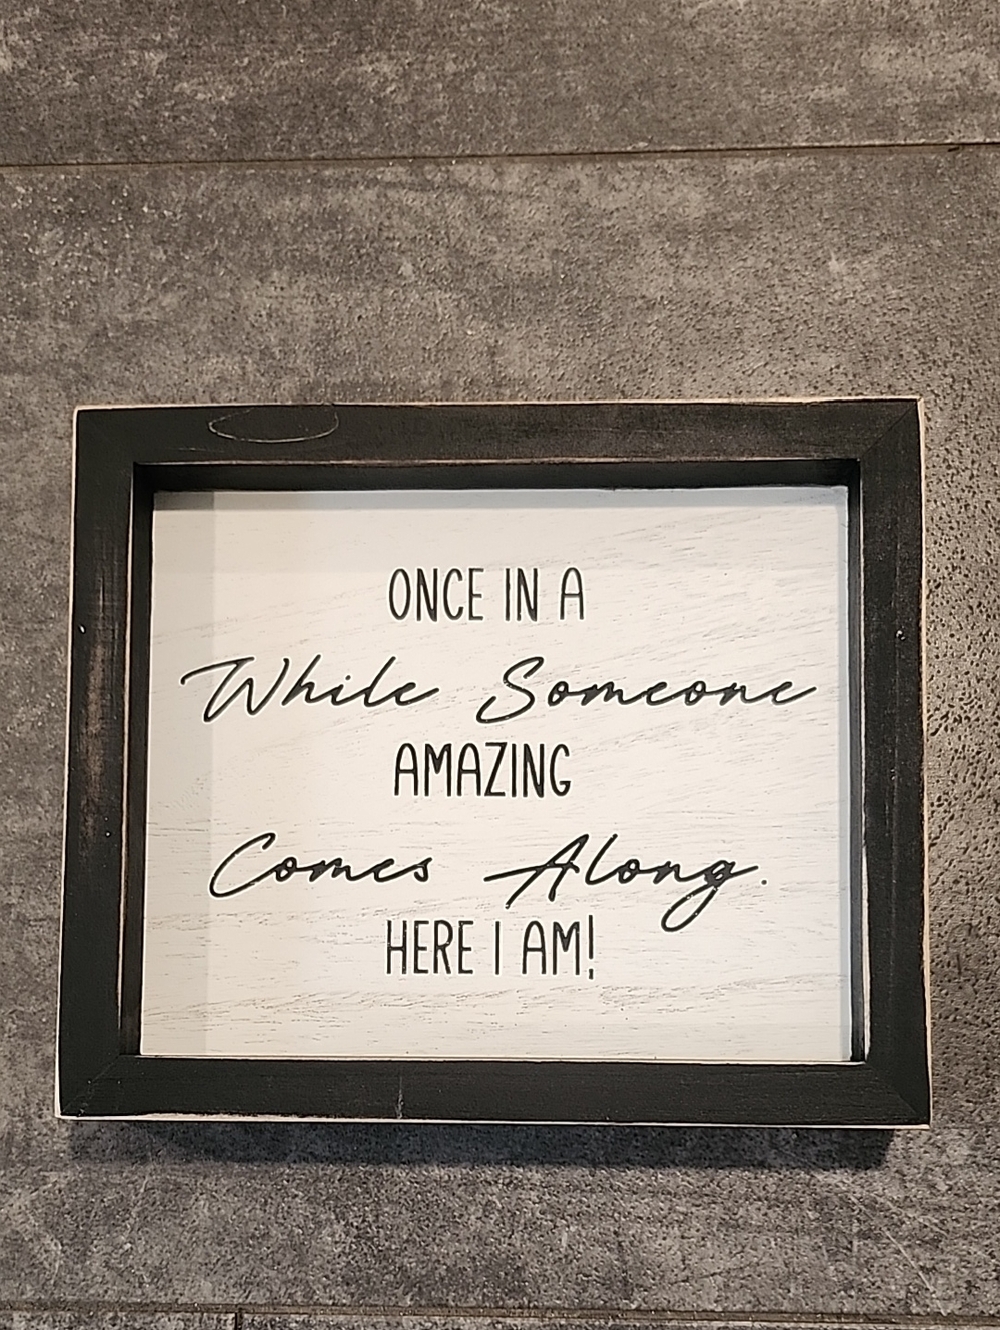 ONCE IN A
While Someone
AMAZING
Comes Along.
HERE I AM!